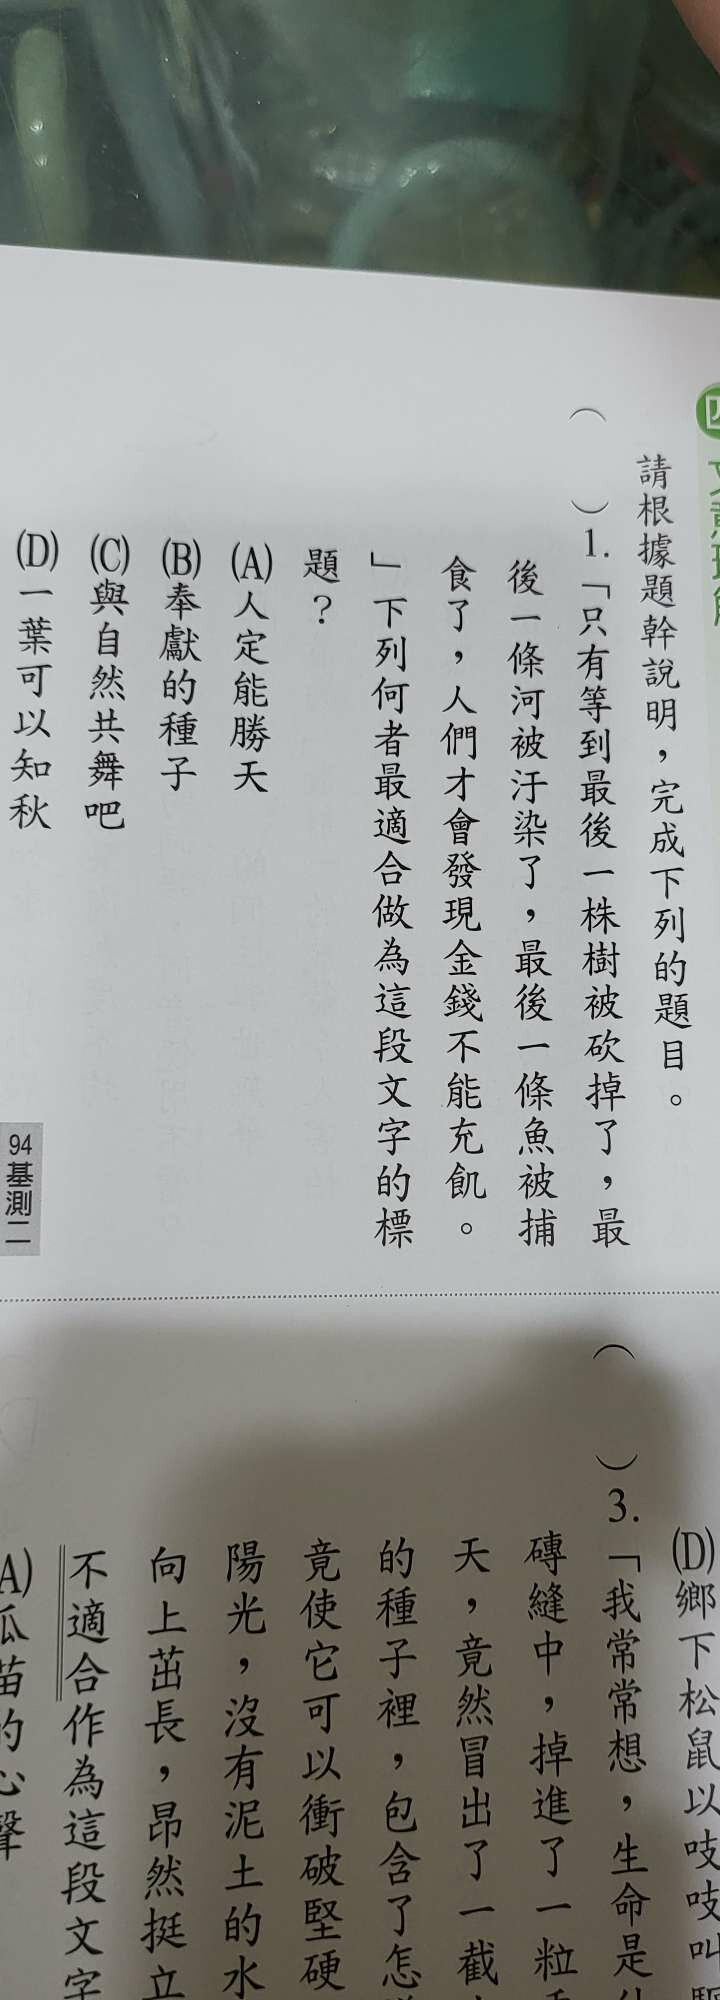 四
請根據題幹說明，完成下列的題目。
（　）1.「只有等到最後一株樹被砍掉了，最
後一條河被汙染了，最後一條魚被捕
食了，人們才會發現金錢不能充飢。
」下列何者最適合做為這段文字的標
題？
(A)人定能勝天
(B)奉獻的種子
(C)與自然共舞吧
(D)一葉可以知秋
94基測二
(D)鄉下松鼠以吱吱叫
（　）3.「我常常想，生命是什
磚縫中，掉進了一粒
天，竟然冒出了一截
的種子裡，包含了怎
竟使它可以衝破堅硬
陽光，沒有泥土的水
向上茁長，昂然挺立
不適合作為這段文字
(A)瓜苗的心聲